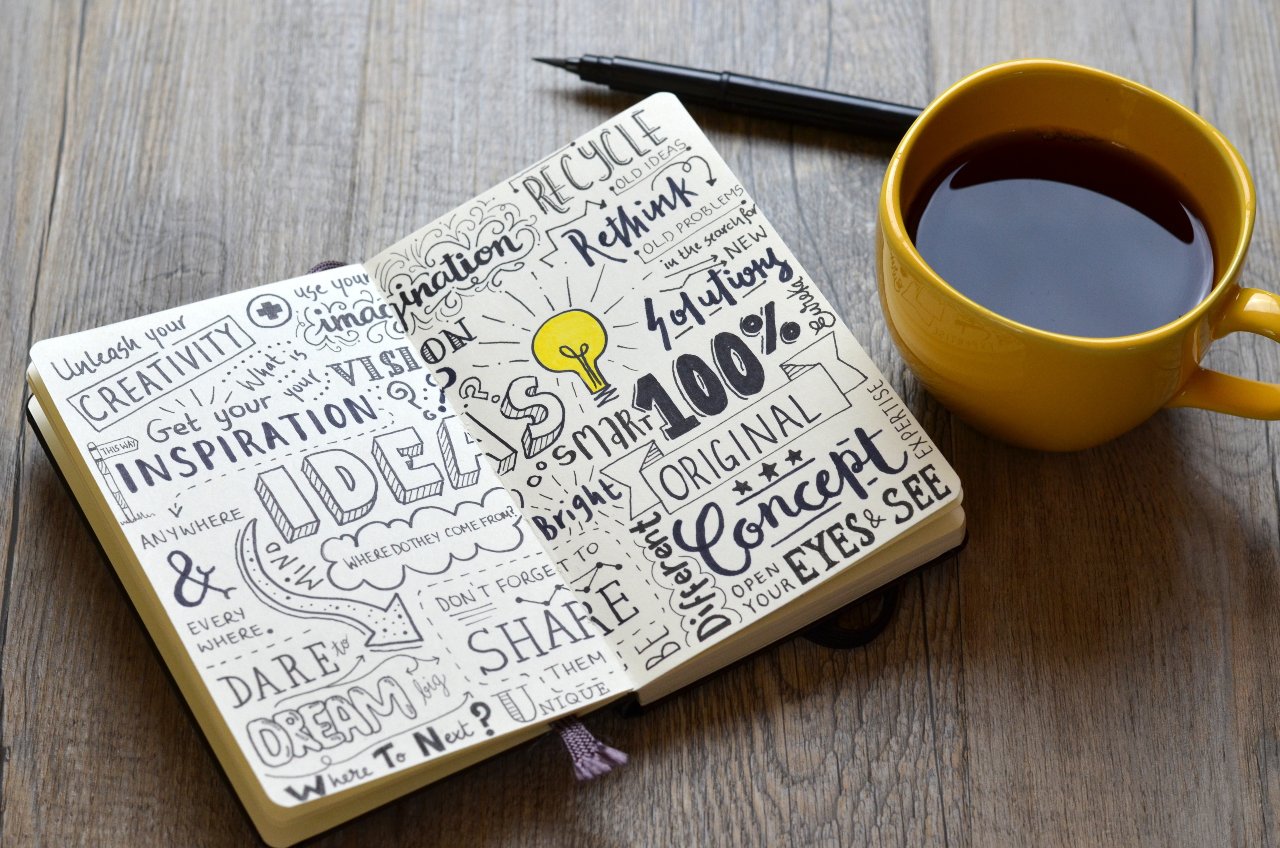 Unleash your
CREATIVITY
use your
imagination
What is
your
VISION
?
Get your
INSPIRATION
THIS WAY
?
?
?
IDEAS
ANYWHERE
&
EVERY
WHERE.
MIND
WHERE DO THEY COME FROM?
DON'T FORGET TO
SHARE
THEM
DARE to
DREAM big
UNIQUE
Where To Next?
RECYCLE
OLD IDEAS
Rethink
OLD PROBLEMS
in the search for
NEW
Solutions
Eureka
SMART
100%
Bright
ORIGINAL
Concept
EXPERTISE
BE
Different
OPEN
YOUR
EYES & SEE